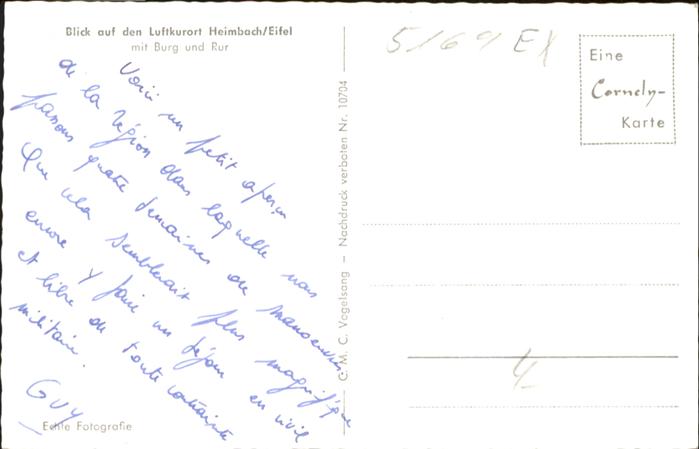 Blick auf den Luftkurort Heimbach/Eifel
mit Burg und Rur
Voici un petit aperçu
de la région dans laquelle nous
passons quatre semaines de manoeuvres
Que cela semblerait plus magnifique
encore d'y faire un séjour en civil
et libre de toute contrainte
militaire.
GUY
Echte Fotografie
C. M. C. Vogelsang — Nachdruck verboten Nr. 10704
5169 EX
Eine
Cornely-
Karte
4-